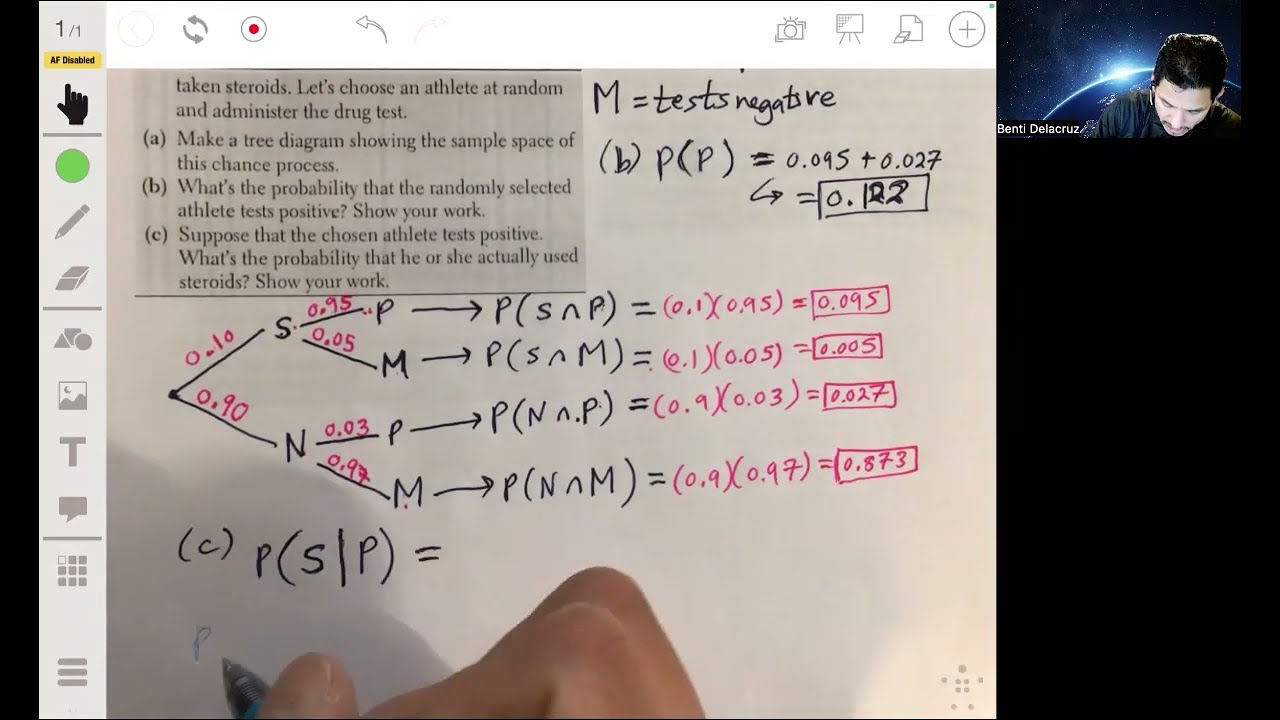 1/1
AF Disabled
taken steroids. Let's choose an athlete at random
and administer the drug test.
(a) Make a tree diagram showing the sample space of
this chance process.
(b) What's the probability that the randomly selected
athlete tests positive? Show your work.
(c) Suppose that the chosen athlete tests positive.
What's the probability that he or she actually used
steroids? Show your work.
M = tests negative
(b) P(P) = 0.095 + 0.027
↳ = 0.122
Benti Delacruz
0.10 S 0.95 P → P(S∩P) = (0.1)(0.95) = 0.095
0.05 M → P(S∩M) = (0.1)(0.05) = 0.005
0.90 N 0.03 P → P(N∩P) = (0.9)(0.03) = 0.027
0.97 M → P(N∩M) = (0.9)(0.97) = 0.873
(c) P(S|P) =
P
T